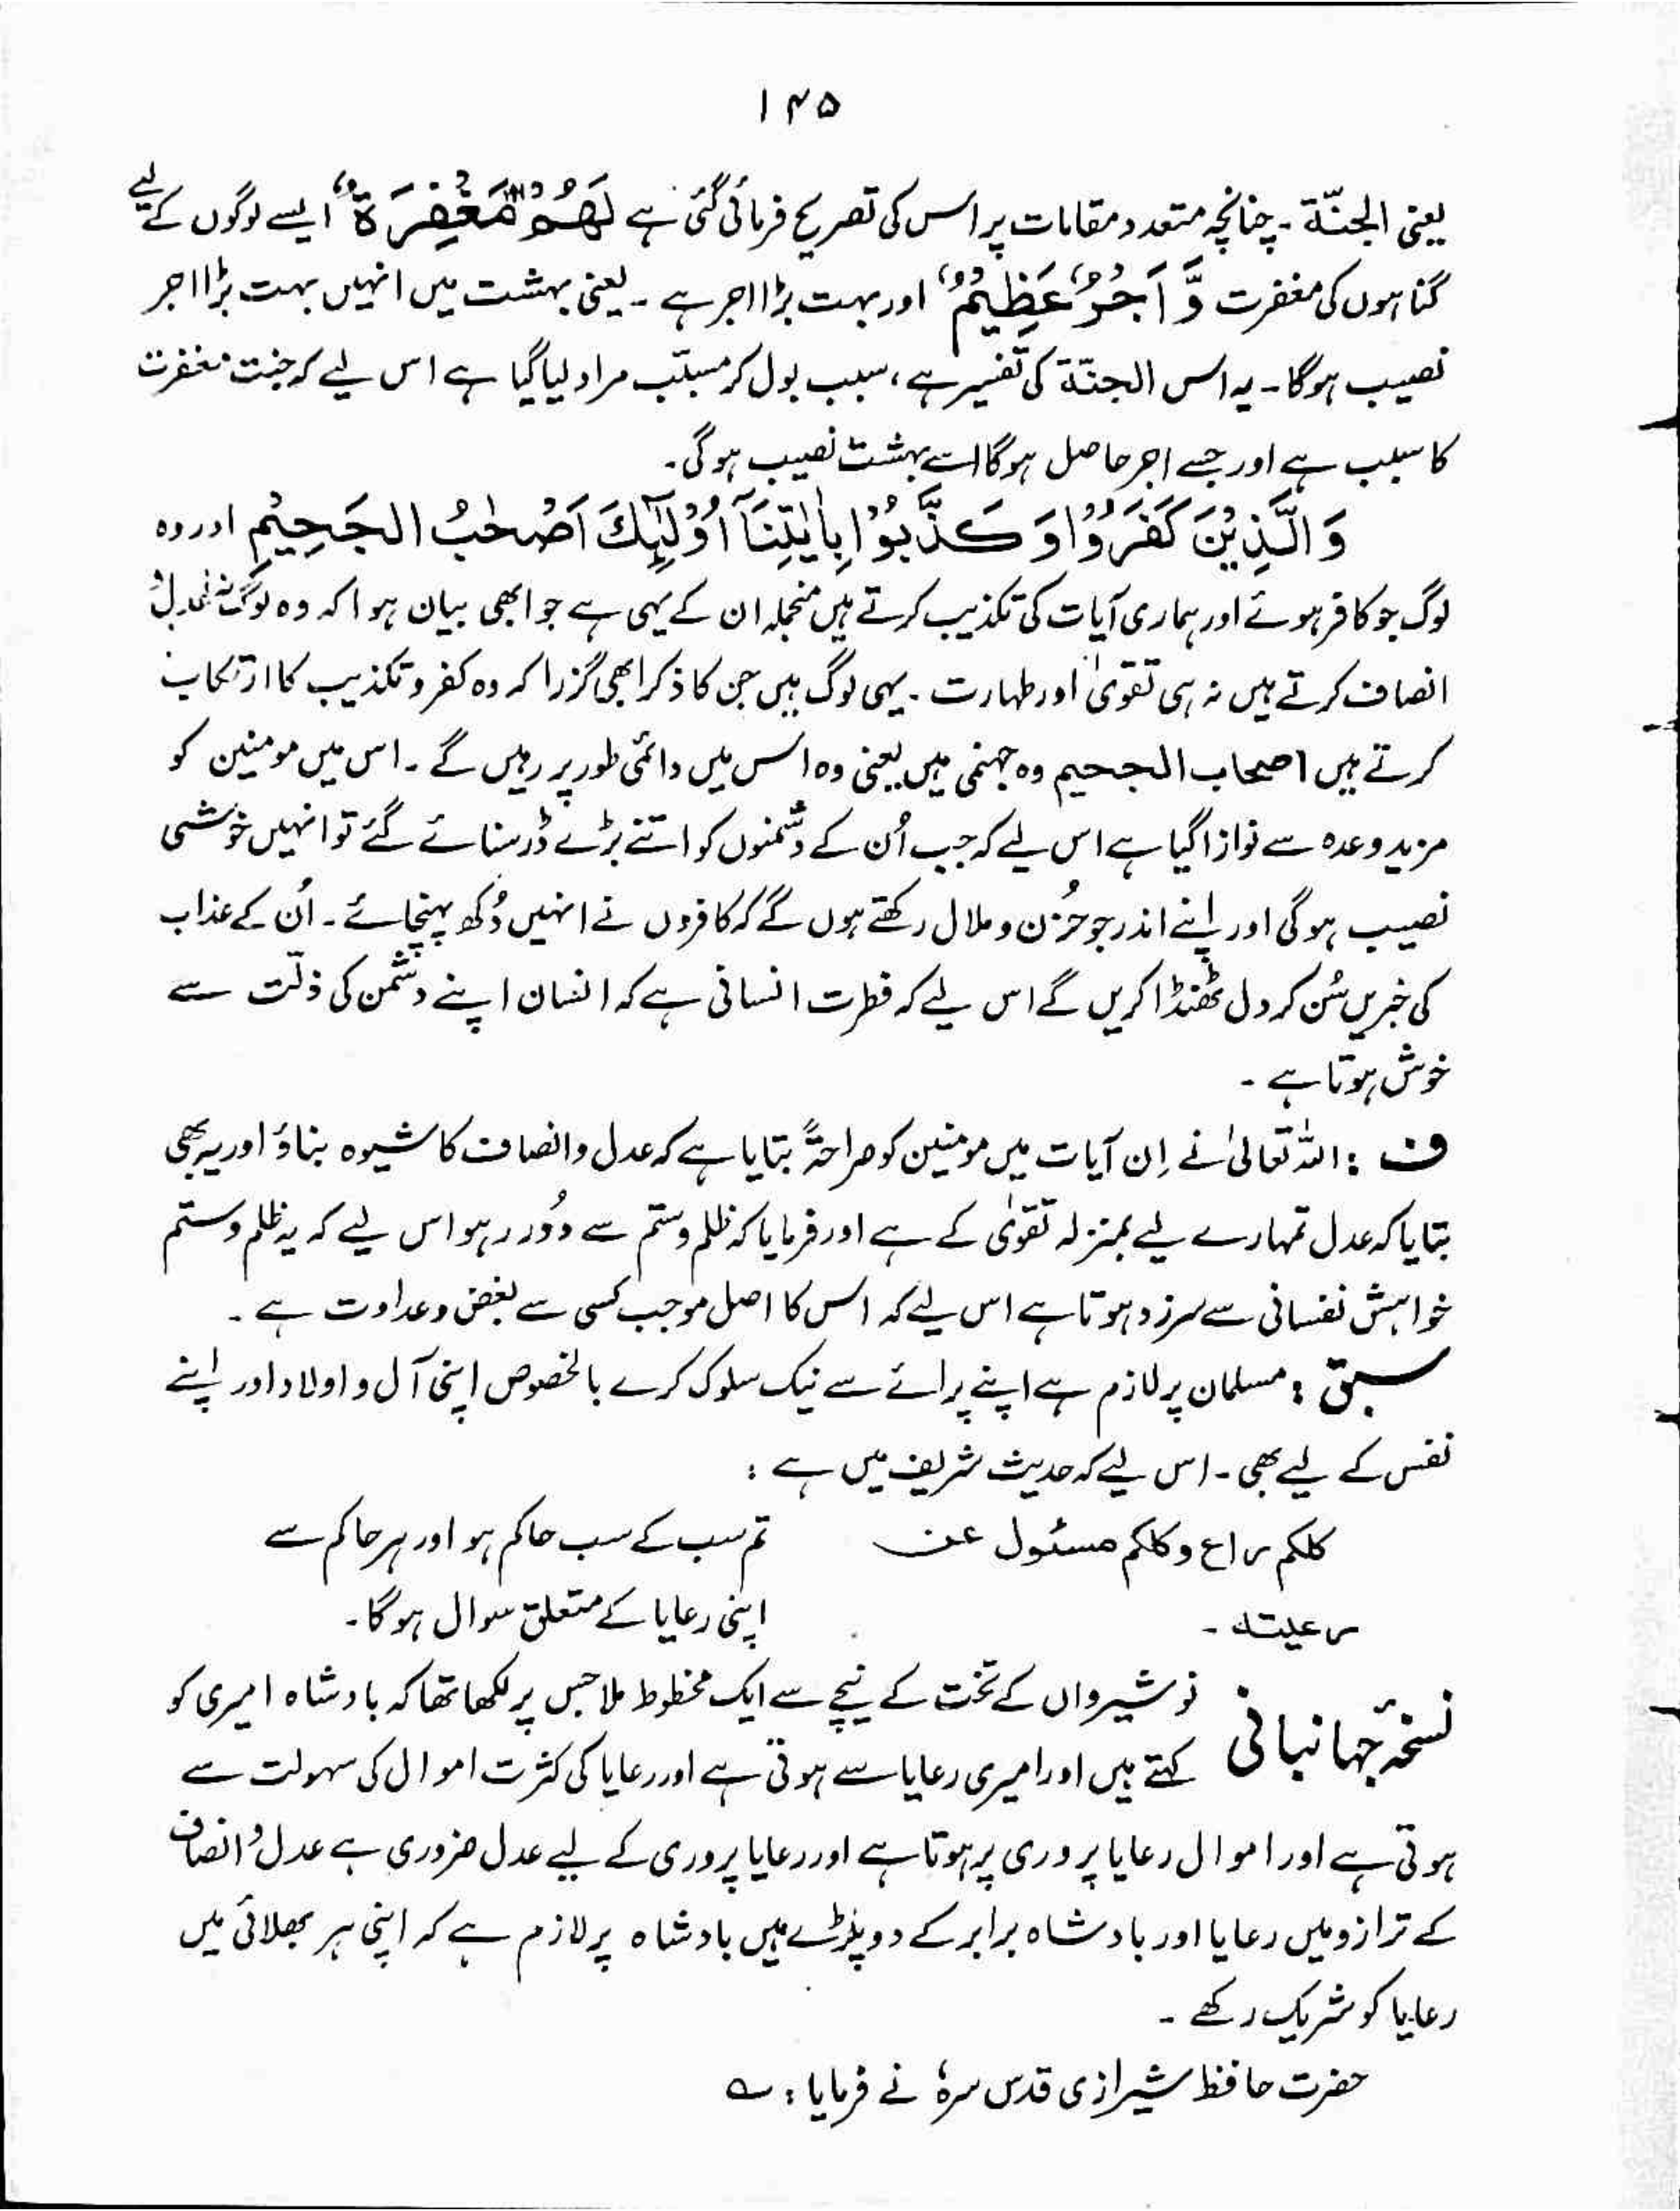 ۱۴۵
یعنی الجنّۃ ۔ چنانچہ متعدد مقامات پر اس کی تصریح فرمائی گئی ہے لَھُمْ مَّغْفِرَۃٌ ایسے لوگوں کے لیے
گناہوں کی مغفرت وَّ اَجْرٌ عَظِیْمٌ اور بہت بڑا اجر ہے ۔ یعنی بہشت میں انہیں بہت بڑا اجر
نصیب ہوگا ۔ یہ اس الجنّۃ کی تفسیر ہے ، سبب بول کر مسبّب مراد لیا گیا ہے اس لیے کہ جنت مغفرت
کا سبب ہے اور جسے اجر حاصل ہوگا اسے بہشت نصیب ہوگی ۔
وَ الَّذِیْنَ کَفَرُوْا وَ کَذَّبُوْا بِاٰیٰتِنَآ اُوْلٰٓئِکَ اَصْحٰبُ الجَحِیْمِ اور وہ
لوگ جو کافر ہوئے اور ہماری آیات کی تکذیب کرتے ہیں منجملہ ان کے یہی ہے جو ابھی بیان ہوا کہ وہ لوگ نہ عدل و
انصاف کرتے ہیں نہ ہی تقویٰ اور طہارت ۔ یہی لوگ ہیں جن کا ذکر ابھی گزرا کہ وہ کفر و تکذیب کا ارتکاب
کرتے ہیں اصحاب الجحیم وہ جہنمی ہیں یعنی وہ اس میں دائمی طور پر رہیں گے ۔ اس میں مومنین کو
مزید وعدہ سے نوازا گیا ہے اس لیے کہ جب اُن کے دشمنوں کو اتنے بڑے ڈر سنائے گئے تو انہیں خوشی
نصیب ہوگی اور اپنے اندر جو حُزن و ملال رکھتے ہوں گے کہ کافروں نے انہیں دُکھ پہنچائے ۔ اُن کے عذاب
کی خبریں سُن کر دل ٹھنڈا کریں گے اس لیے کہ فطرت انسانی ہے کہ انسان اپنے دشمن کی ذلّت سے
خوش ہوتا ہے ۔
ف : اللہ تعالیٰ نے اِن آیات میں مومنین کو صراحۃً بتایا ہے کہ عدل و انصاف کا شیوہ بناؤ اور یہ بھی
بتایا کہ عدل تمہارے لیے بمنزلہ تقویٰ کے ہے اور فرمایا کہ ظلم و ستم سے دُور رہو اس لیے کہ یہ ظلم و ستم
خواہش نفسانی سے سرزد ہوتا ہے اس لیے کہ اس کا اصل موجب کسی سے بغض و عداوت ہے ۔
سبق : مسلمان پر لازم ہے اپنے پرائے سے نیک سلوک کرے بالخصوص اپنی آل و اولاد اور اپنے
نفس کے لیے بھی ۔ اس لیے کہ حدیث شریف میں ہے :
کلکم راع و کلکم مسئول عن تم سب کے سب حاکم ہو اور ہر حاکم سے
رعیتہ ۔ اپنی رعایا کے متعلق سوال ہوگا ۔
نسخۂ جہانبانی نوشیرواں کے تخت کے نیچے سے ایک مخطوط ملا جس پر لکھا تھا کہ بادشاہ امیری کو
کہتے ہیں اور امیری رعایا سے ہوتی ہے اور رعایا کی کثرت اموال کی سہولت سے
ہوتی ہے اور اموال رعایا پروری پر ہوتا ہے اور رعایا پروری کے لیے عدل ضروری ہے عدل و انصاف
کے ترازو میں رعایا اور بادشاہ برابر کے دو پلڑے ہیں بادشاہ پر لازم ہے کہ اپنی ہر بھلائی میں
رعایا کو شریک رکھے ۔
حضرت حافظ شیرازی قدس سرہٗ نے فرمایا : ؎